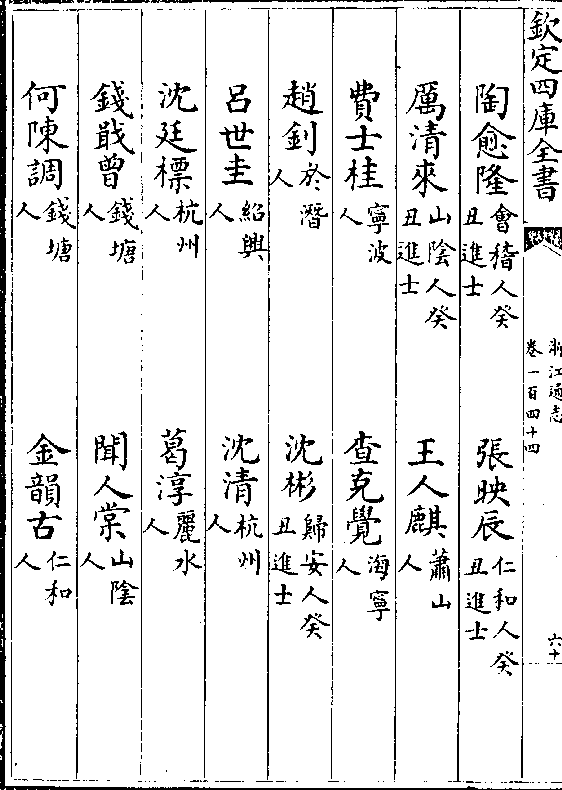 欽定四庫全書
浙江通志
卷一百四十四
六十
陶愈隆會稽人癸丑進士
張映辰仁和人癸丑進士
厲清來山陰人癸丑進士
王人麒蕭山人
費士桂寧波人
查克覺海寧人
趙釗於潛人
沈彬歸安人癸丑進士
呂世圭紹興人
沈清杭州人
沈廷標杭州人
葛淳麗水人
錢戢曾錢塘人
聞人棠山陰人
何陳調錢塘人
金韻古仁和人